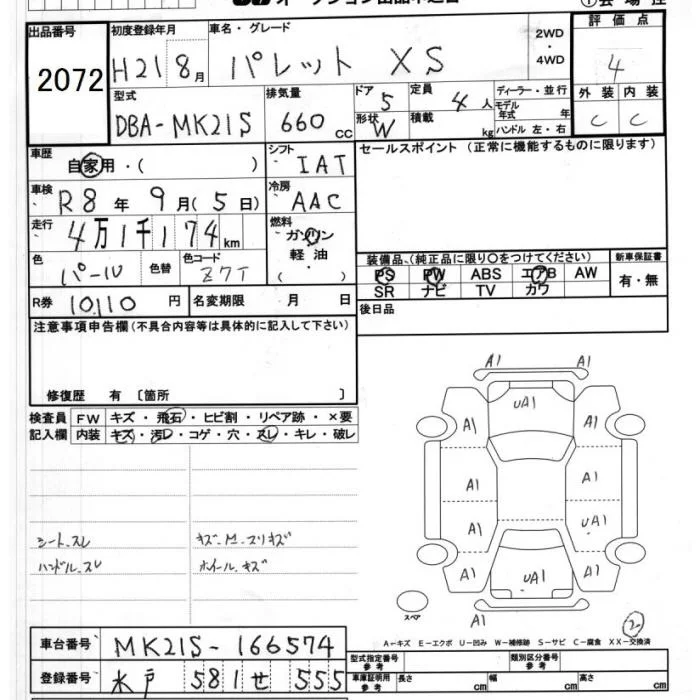 出品番号
2072
初度登録年月
H21 8月
車名・グレード
パレット XS
2WD
・
4WD
評価点
4
外装 内装
C C
型式
DBA-MK21S
排気量
660 cc
ドア 5
形状 W
定員 4人
積載 kg
ディーラー・並行
モデル年式 年
ハンドル 左・右
車歴
自家用・( )
シフト
IAT
セールスポイント (正常に機能するものに限ります)
車検
R8年 9月( 5日)
冷房
AAC
走行
4万1千174km
燃料
ガソリン
軽油
( )
色
パール
色替
色コード
Z7T
装備品、(純正品に限り○をつけてください)
PS PW ABS エアB AW
SR ナビ TV カワ
新車保証書
有・無
R券 10,110円
名変期限 月 日
後日品
注意事項申告欄(不具合内容等は具体的に記入して下さい)
修復歴 有 〔箇所 〕
検査員
記入欄
FW キズ・飛石・ヒビ割・リペア跡・×要
内装 キズ・汚レ・コゲ・穴・スレ・キレ・破レ
シート.スレ
ハンドル.スレ
キズ.M.スリキズ
ホイール.キズ
A1 A1
UA1
A1 A1
A1 A1
A1 UA1
A1 UA1 A1
A1
スペア
2
A-キズ E-エクボ U-凹み W-補修跡 S-サビ C-腐食 XX-交換済
車台番号
MK21S-166574
登録番号
水戸 581 せ 555
型式指定番号
参考
類別区分番号
参考
車庫証明用
参考
長さ cm
幅 cm
高さ cm